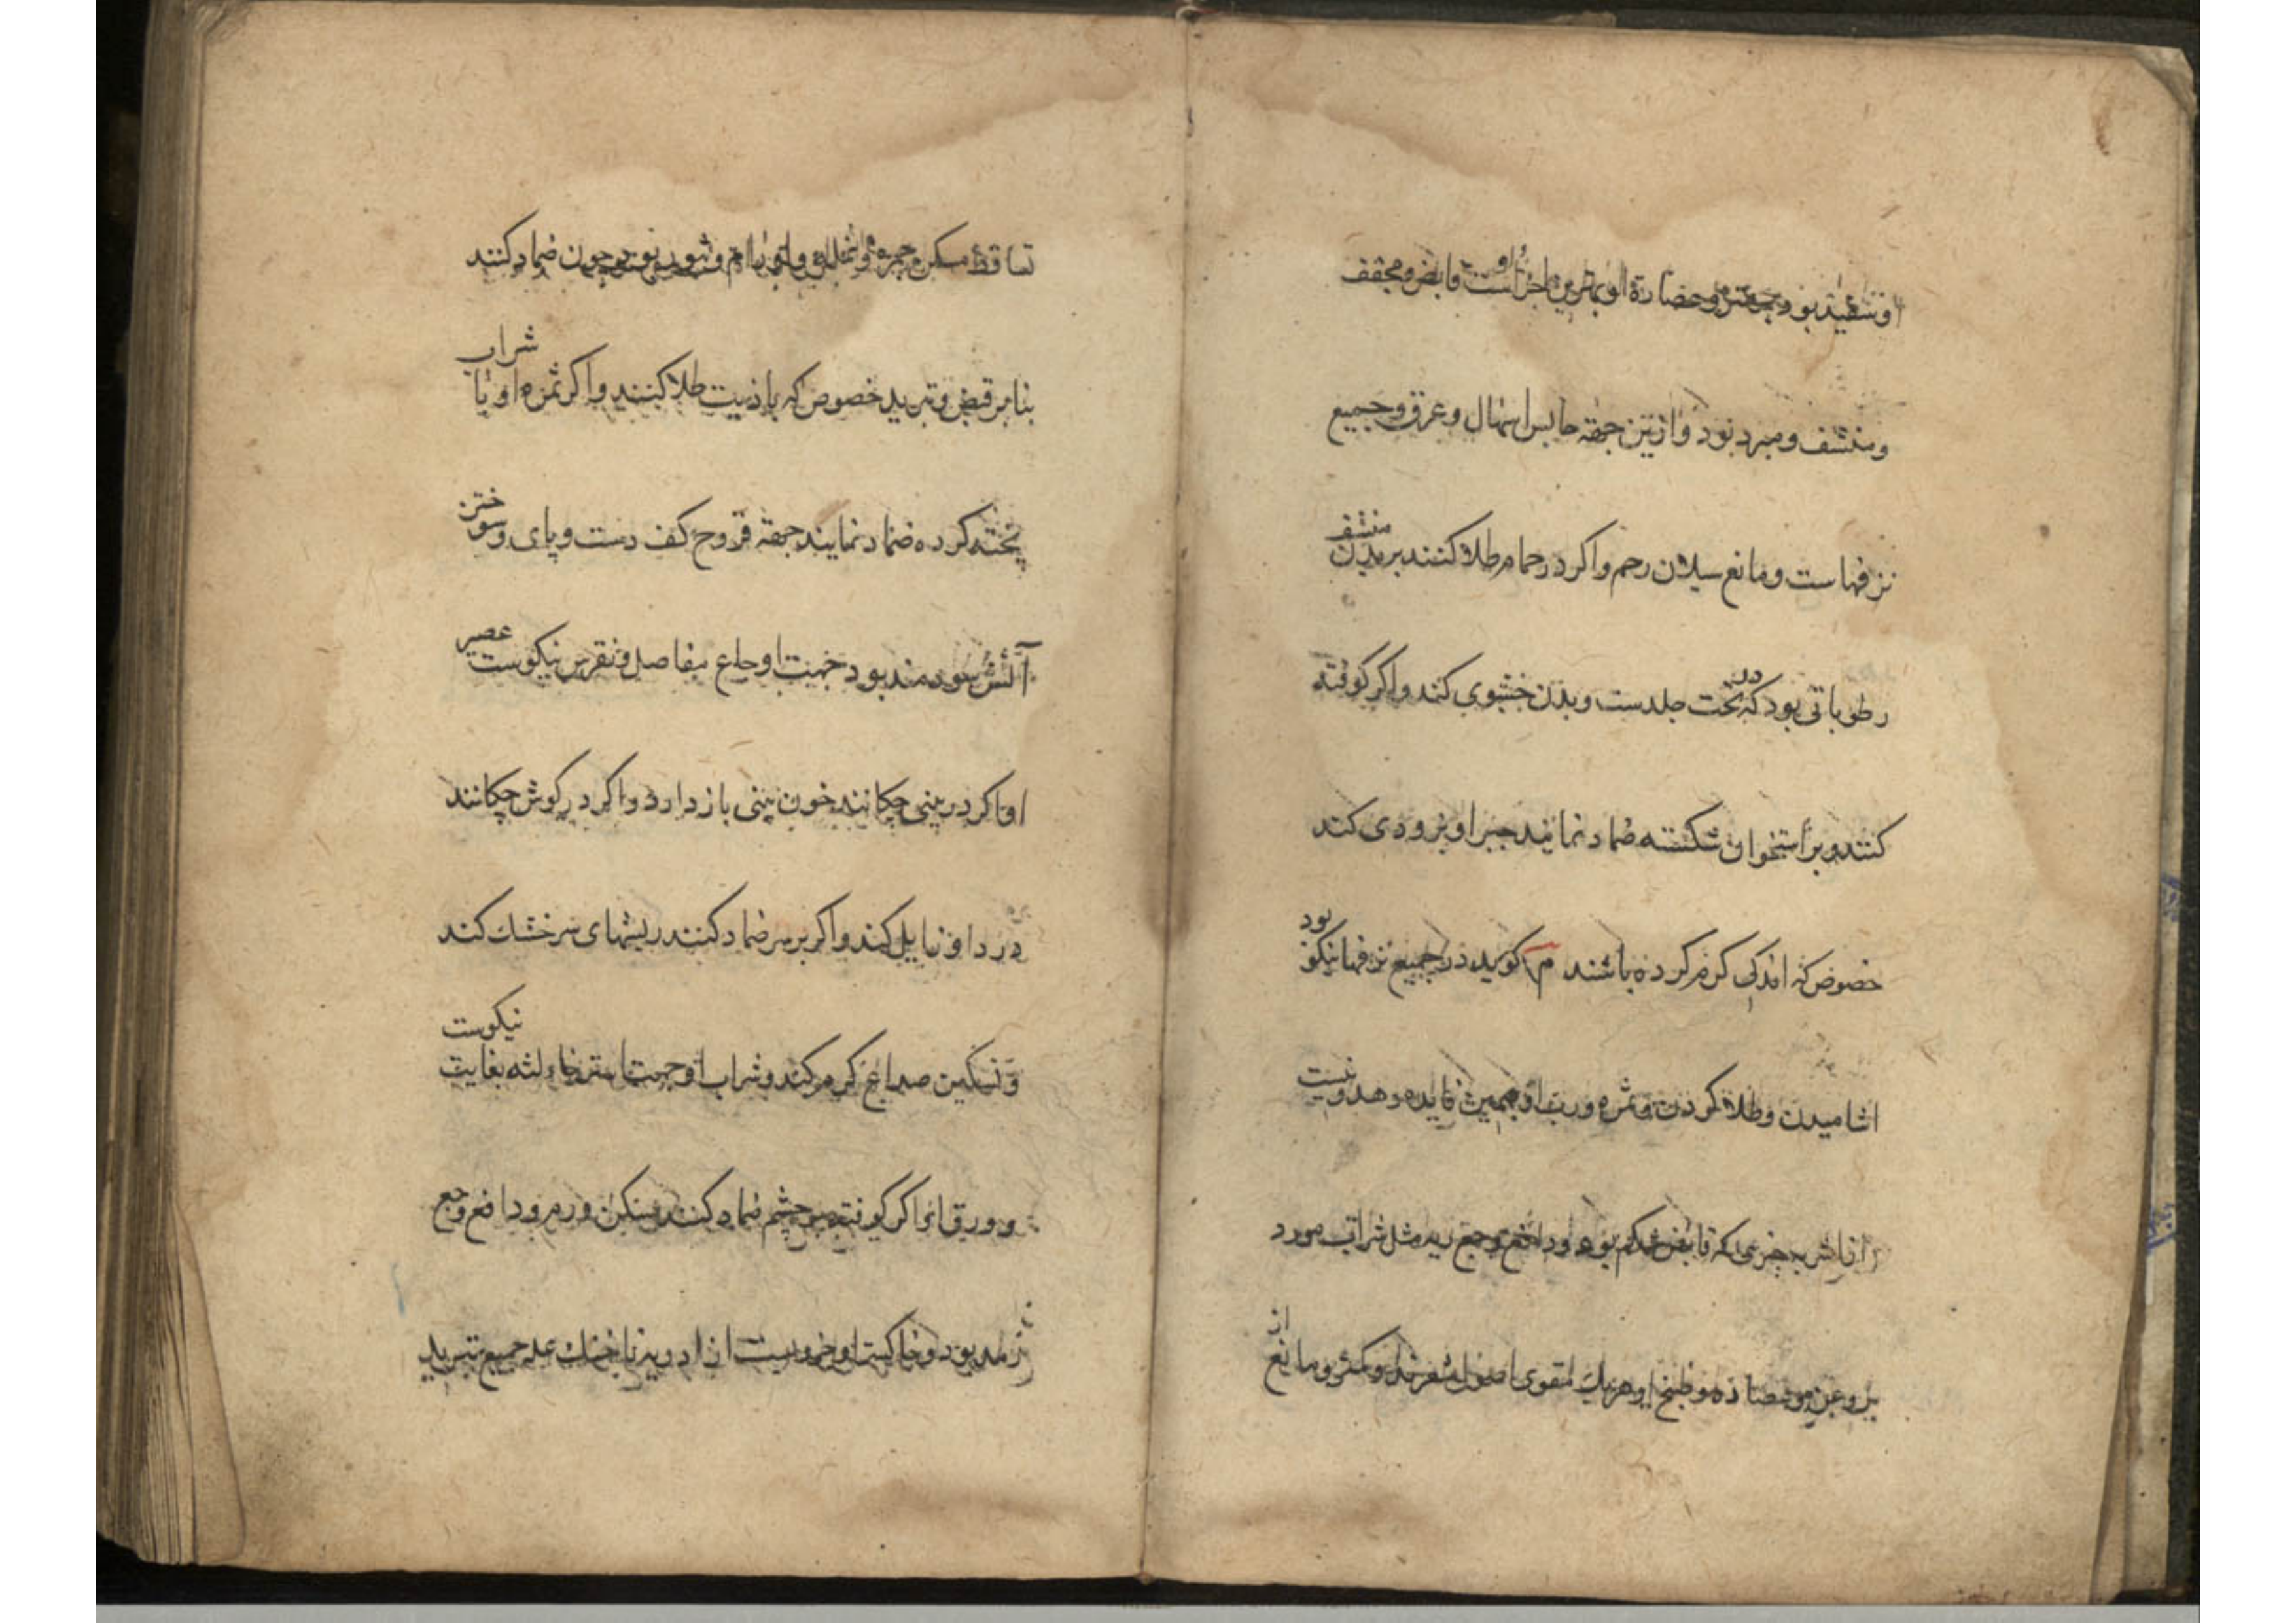 او شعید بود بجهة و عصارۀ او بهترین اجزا اوست و قابض و مجفف
ومنشف ومبرد بود و ازین جهة حابس اسهال و عرق و جمیع
نزفهاست و مانع سیلان رحم و اکر در حمام طلا کنند بر بدن منشف
رطوباتی بود که در تحت جلدست و بدن خشبوی کند و اکر کوفته
کنند و بر استخوان شکسته ضماد نمایند جبر او بزودی کند
خصوص که اندکی کرم کرده باشند م کوید در جمیع نزفها نیکو بود
اشامیدن و طلا کردن و ثمره و رب او همین فایده دهد و نیست
از اشربه چیزی که قابض شکم بود و دافع وجع ریه مثل شراب مورد
بروغن مو عصاره و طبیخ او هریک مقوی اصول شعرند و مانع از
تساقط مسکن جمره و نمله و اورام و شور بود چون ضماد کنند
بنابر قبض و تبرید خصوص که بازیت طلا کنند و اکر ثمره او با شراب
پخته کرده ضماد نمایند جهة قروح کف دست و پای و سوختن
آتش سودمند بود جهت اوجاع مفاصل و نقرس نیکوست عصیر
او اکر در بینی چکانند خون بینی باز دارد و اکر در کوش چکانند
درد او زایل کند و اکر بر سر ضماد کنند ریشهای سر خشك کند
و تسکین صداع کرم کند و شراب او جهت استرخاء لثه بغایت نیکوست
و ورق او اکر کوفته بر چشم ضماد کنند مسکن ورم و دافع وجع
رمد بود و خاکستر او جمیع تبرید